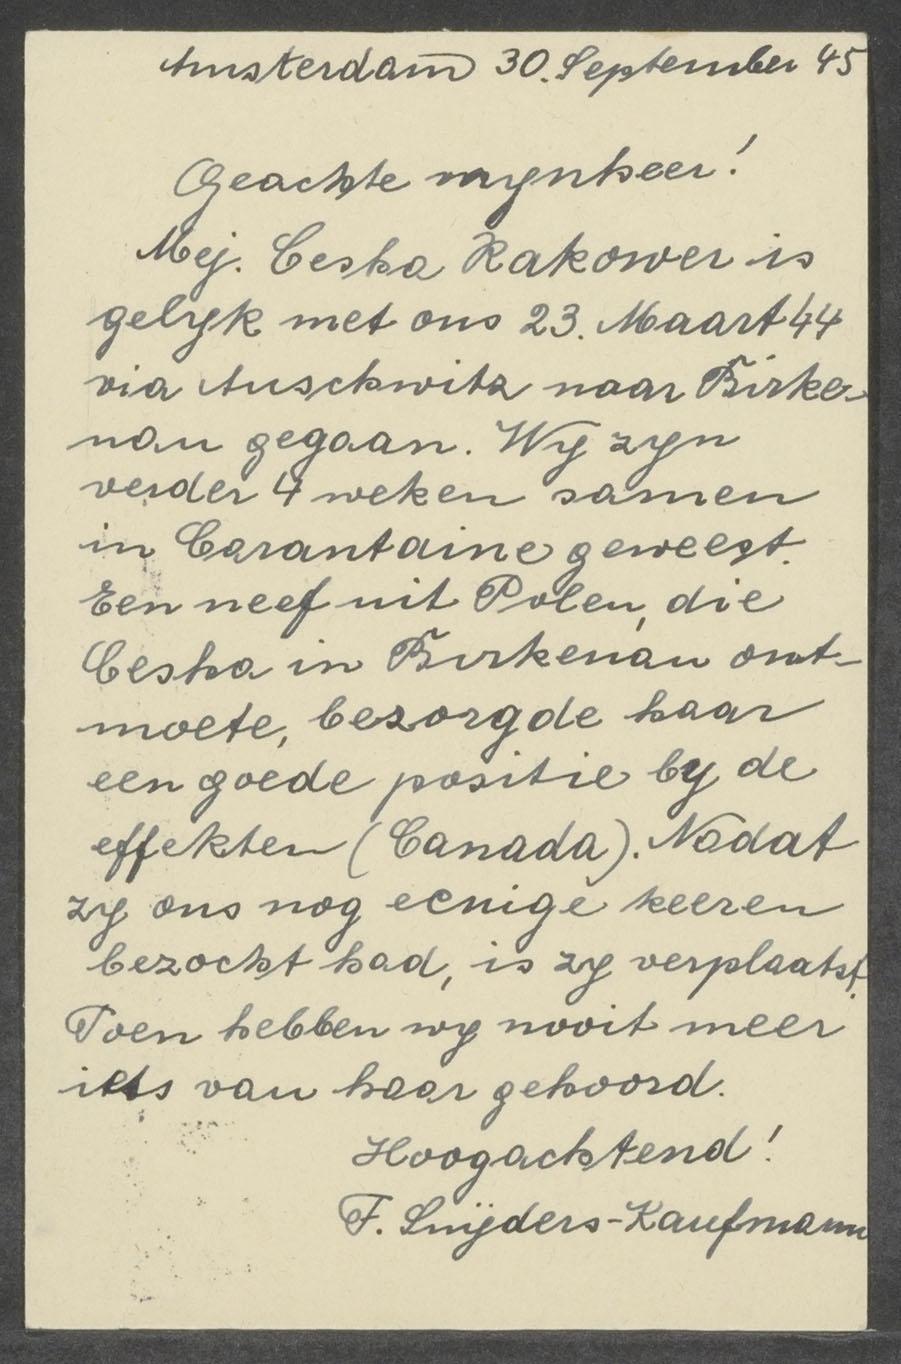 Amsterdam 30. September 45
Geachte mynheer!
Mej. Ceska Rakower is
gelyk met ons 23. Maart 44
via Auschwitz naar Birke-
nau gegaan. Wy zyn
verder 4 weken samen
in Carantaine geweest.
Een neef uit Polen, die
Ceska in Birkenau ont-
moete, bezorgde haar
een goede positie by de
effekten (Canada). Nadat
zy ons nog eenige keeren
bezocht had, is zy verplaatst.
Toen hebben wy nooit meer
iets van haar gehoord.
Hoogachtend!
F. Snijders-Kaufmann